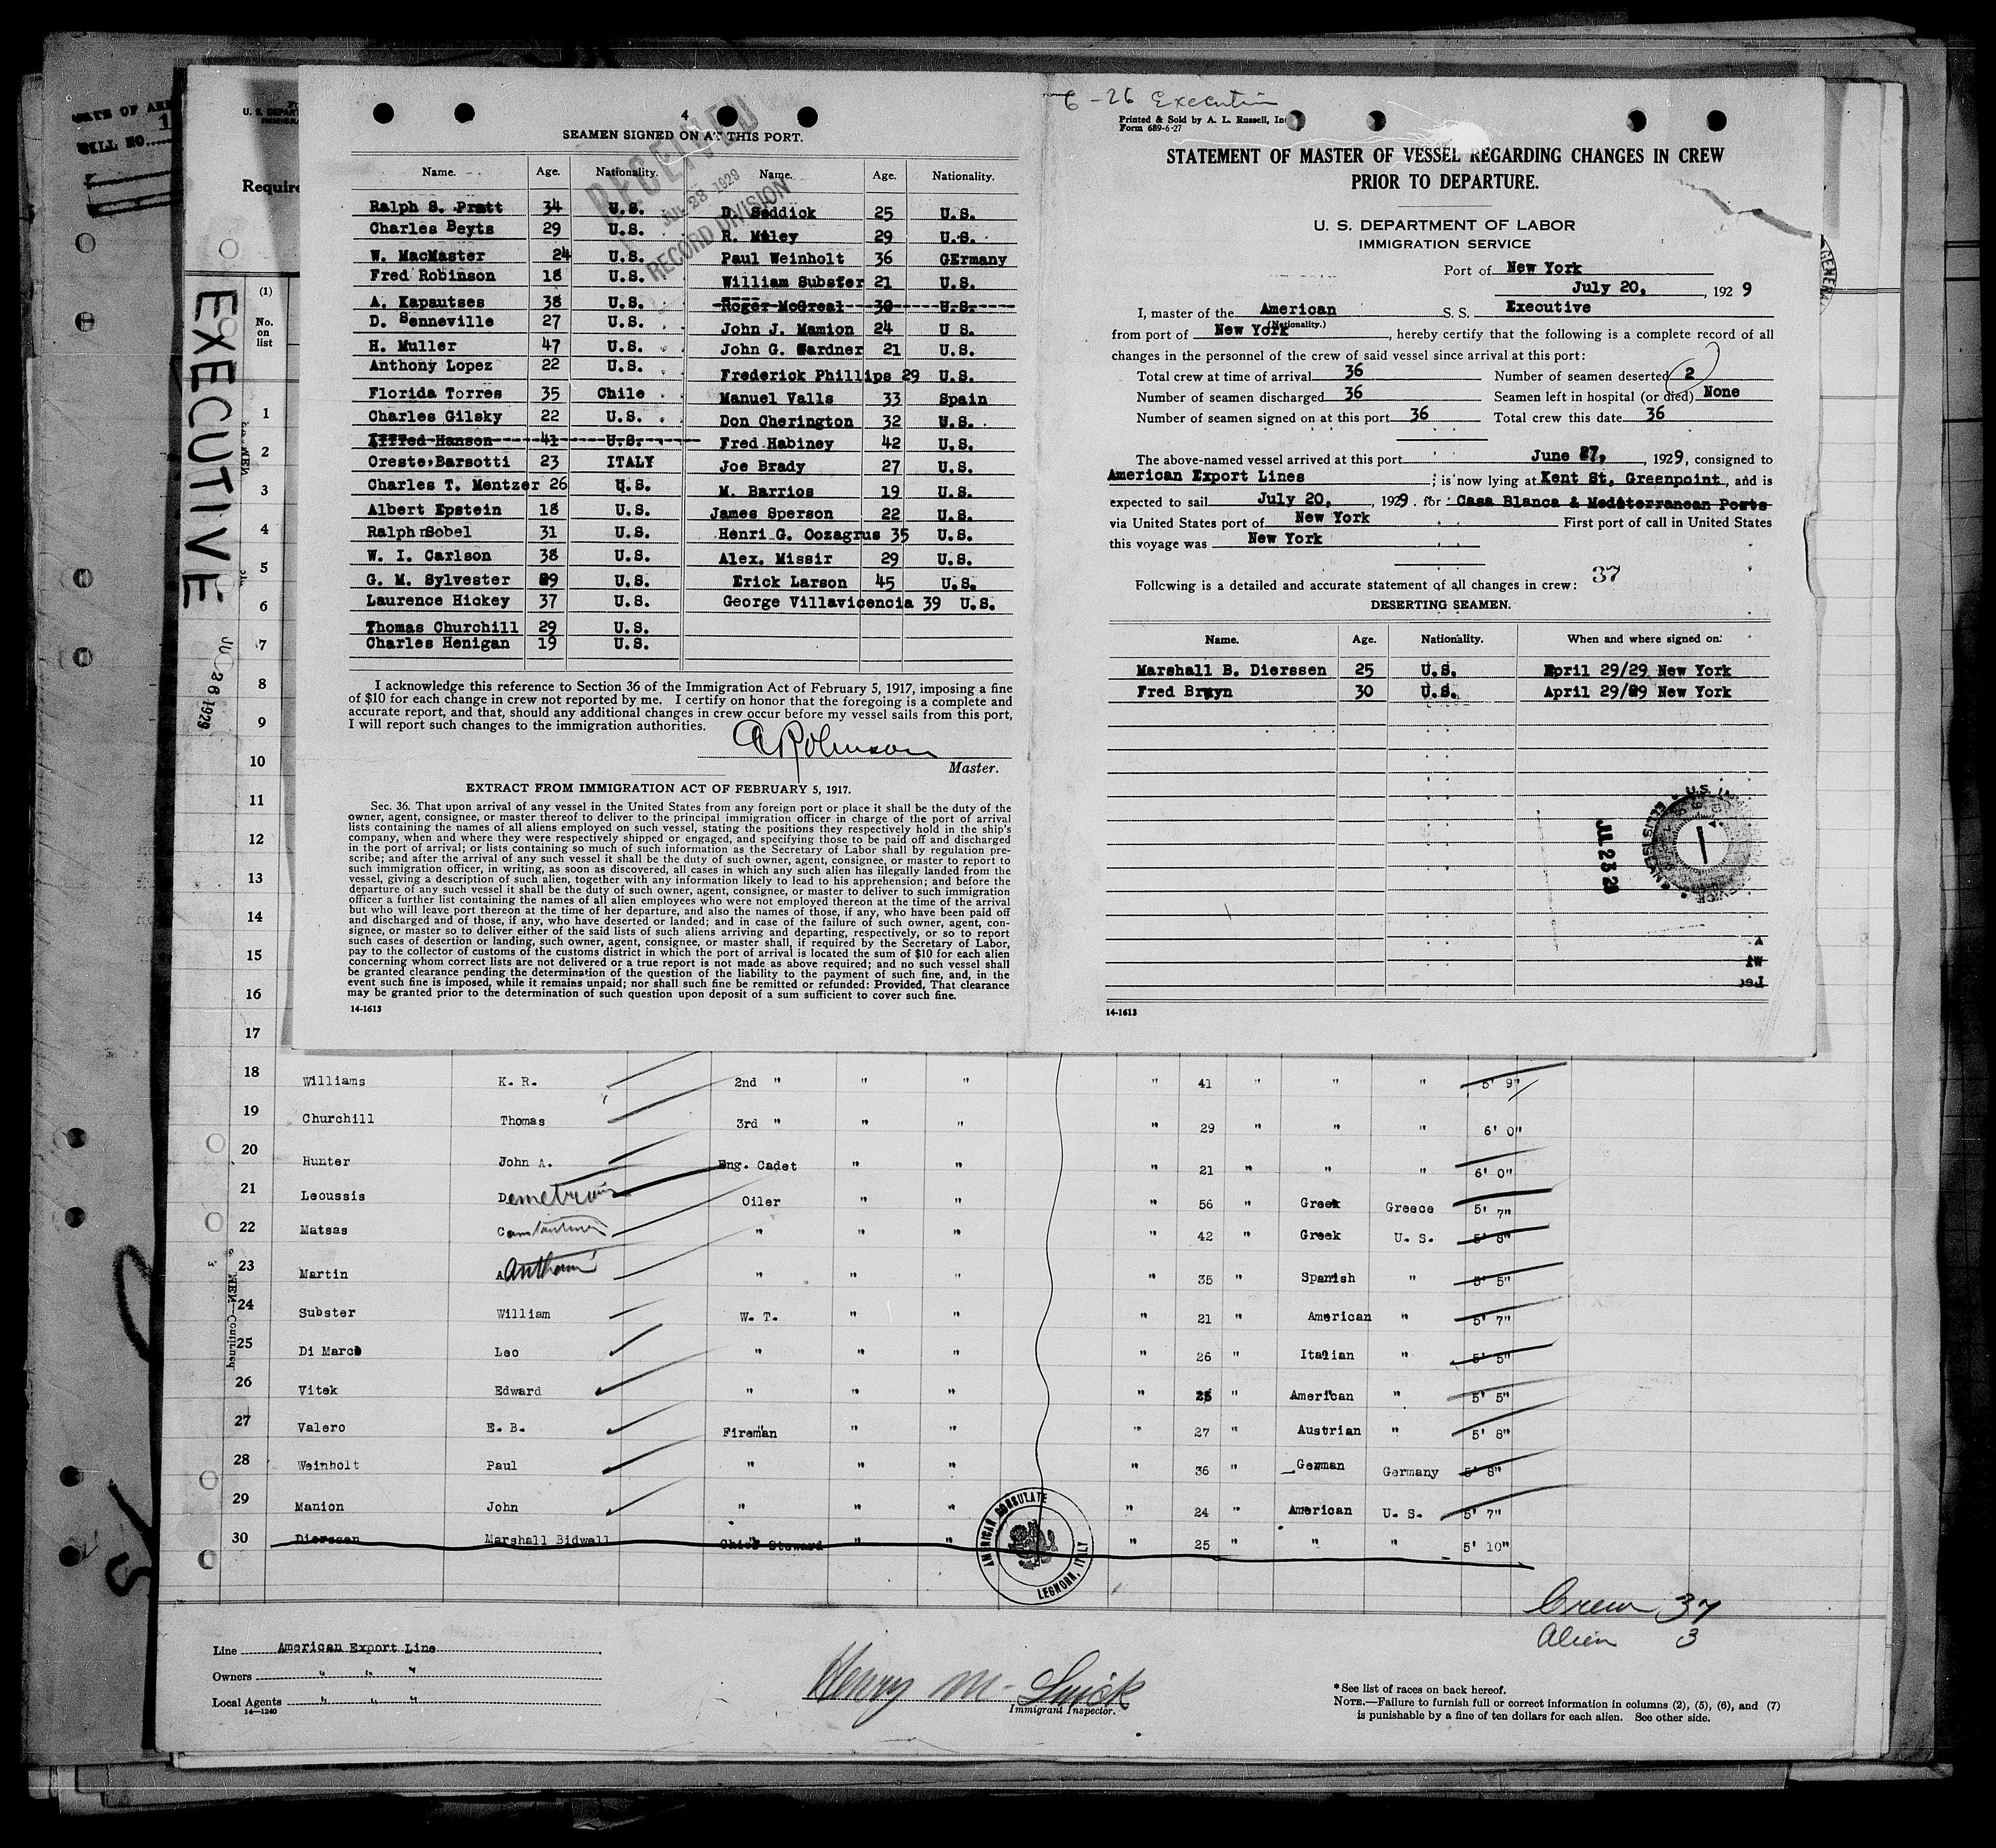 6-26 Executive
4
SEAMEN SIGNED ON AT THIS PORT.
RECEIVED
JUL 23 1929
RECORD DIVISION
Name. Age. Nationality. Name. Age. Nationality.
Ralph S. Pratt 34 U.S. D. Seddick 25 U.S.
Charles Beyts 29 U.S. R. Miley 29 U.S.
W. MacMaster 24 U.S. Paul Weinholt 36 GErmany
Fred Robinson 18 U.S. William Subster 21 U.S.
A. Kapautses 38 U.S. Roger McGreal 30 U.S.
D. Senneville 27 U.S. John J. Mamion 24 U S.
H. Muller 47 U.S. John G. Gardner 21 U.S.
Anthony Lopez 22 U.S. Frederick Phillips 29 U.S.
Florida Torres 35 Chile Manuel Valls 33 Spain
Charles Gilsky 22 U.S. Don Cherington 32 U.S.
Alfred Hansen 41 U.S. Fred Habiney 42 U.S.
Oreste Barsotti 23 ITALY Joe Brady 27 U.S.
Charles T. Mentzer 26 U.S. M. Barrios 19 U.S.
Albert Epstein 18 U.S. James Sperson 22 U.S.
Ralph Sobel 31 U.S. Henri G. Oozagrus 35 U.S.
W. I. Carlson 38 U.S. Alex. Missir 29 U.S.
G. M. Sylvester 29 U.S. Erick Larson 45 U.S.
Laurence Hickey 37 U.S. George Villavicencia 39 U.S.
Thomas Churchill 29 U.S.
Charles Henigan 19 U.S.
I acknowledge this reference to Section 36 of the Immigration Act of February 5, 1917, imposing a fine
of $10 for each change in crew not reported by me. I certify on honor that the foregoing is a complete and
accurate report, and that, should any additional changes in crew occur before my vessel sails from this port,
I will report such changes to the immigration authorities.
Robinson
Master.
EXTRACT FROM IMMIGRATION ACT OF FEBRUARY 5, 1917.
Sec. 36. That upon arrival of any vessel in the United States from any foreign port or place it shall be the duty of the
owner, agent, consignee, or master thereof to deliver to the principal immigration officer in charge of the port of arrival
lists containing the names of all aliens employed on such vessel, stating the positions they respectively hold in the ship's
company, when and where they were respectively shipped or engaged, and specifying those to be paid off and discharged
in the port of arrival; or lists containing so much of such information as the Secretary of Labor shall by regulation pre-
scribe; and after the arrival of any such vessel it shall be the duty of such owner, agent, consignee, or master to report to
such immigration officer, in writing, as soon as discovered, all cases in which any such alien has illegally landed from the
vessel, giving a description of such alien, together with any information likely to lead to his apprehension; and before the
departure of any such vessel it shall be the duty of such owner, agent, consignee, or master to deliver to such immigration
officer a further list containing the names of all alien employees who were not employed thereon at the time of the arrival
but who will leave port thereon at the time of her departure, and also the names of those, if any, who have been paid off
and discharged and of those, if any, who have deserted or landed; and in case of the failure of such owner, agent, con-
signee, or master so to deliver either of the said lists of such aliens arriving and departing, respectively, or so to report
such cases of desertion or landing, such owner, agent, consignee, or master shall, if required by the Secretary of Labor,
pay to the collector of customs of the customs district in which the port of arrival is located the sum of $10 for each alien
concerning whom correct lists are not delivered or a true report is not made as above required; and no such vessel shall
be granted clearance pending the determination of the question of the liability to the payment of such fine, and, in the
event such fine is imposed, while it remains unpaid; nor shall such fine be remitted or refunded: Provided, That clearance
may be granted prior to the determination of such question upon deposit of a sum sufficient to cover such fine.
14-1613
Printed & Sold by A. L. Russell, Inc
Form 689-6-27
STATEMENT OF MASTER OF VESSEL REGARDING CHANGES IN CREW
PRIOR TO DEPARTURE.
U. S. DEPARTMENT OF LABOR
IMMIGRATION SERVICE
Port of New York
July 20, , 192 9
I, master of the American S. S. Executive
(Nationality.)
from port of New York, hereby certify that the following is a complete record of all
changes in the personnel of the crew of said vessel since arrival at this port:
Total crew at time of arrival 36 Number of seamen deserted 2
Number of seamen discharged 36 Seamen left in hospital (or died) None
Number of seamen signed on at this port 36 Total crew this date 36
The above-named vessel arrived at this port June 27, , 1929, consigned to
American Export Lines ; is now lying at Kent St, Greenpoint, and is
expected to sail July 20, , 1929 . for Casa Blanca & Mediterranean Ports
via United States port of New York First port of call in United States
this voyage was New York
Following is a detailed and accurate statement of all changes in crew: 37
DESERTING SEAMEN.
Name. Age. Nationality. When and where signed on:
Marshall B. Dierssen 25 U.S. April 29/29 New York
Fred Bruyn 30 U.S. April 29/29 New York
JUL 23 29
14-1613
EXECUTIVE
JU 26 1929
Require
(1)
No.
on
list
1
2
3
4
5
6
7
8
9
10
11
12
13
14
15
16
17
18 Williams K. R. 2nd " " " " 41 " " " 5' 9"
19 Churchill Thomas 3rd " " " " 29 " " " 6' 0"
20 Hunter John A. Eng. Cadet " " " 21 " " " 6' 0"
21 Leoussis Demetrius Oiler " " " 56 " Greek Greece 5' 7"
22 Matsas Constantine " " " " 42 " Greek U. S. 5' 8"
23 Martin Anthoni " " " " 35 " Spanish " 5' 5"
24 Subster William W. T. " " " 21 American " 5' 7"
25 Di Marco Leo " " " " 26 " Italian " 5' 5"
26 Vitek Edward " " " " 25 " American " 5' 5"
27 Valero E. B. Fireman " " " 27 " Austrian " 5' 8"
28 Weinholt Paul " " " " 36 " German Germany 5' 8"
29 Manion John " " " " 24 " American U. S. 5' 7"
30 Dierssen Marshall Bidwell Chief Steward " " " 25 " " " 5' 10"
AMERICAN CONSULATE
LEGHORN, ITALY
Crew 37
Alien 3
Line American Export Line
Owners " " "
Local Agents " " "
14-1240
Henry M.
Immigrant Inspector.
* See list of races on back hereof.
NOTE.—Failure to furnish full or correct information in columns (2), (5), (6), and (7)
is punishable by a fine of ten dollars for each alien. See other side.